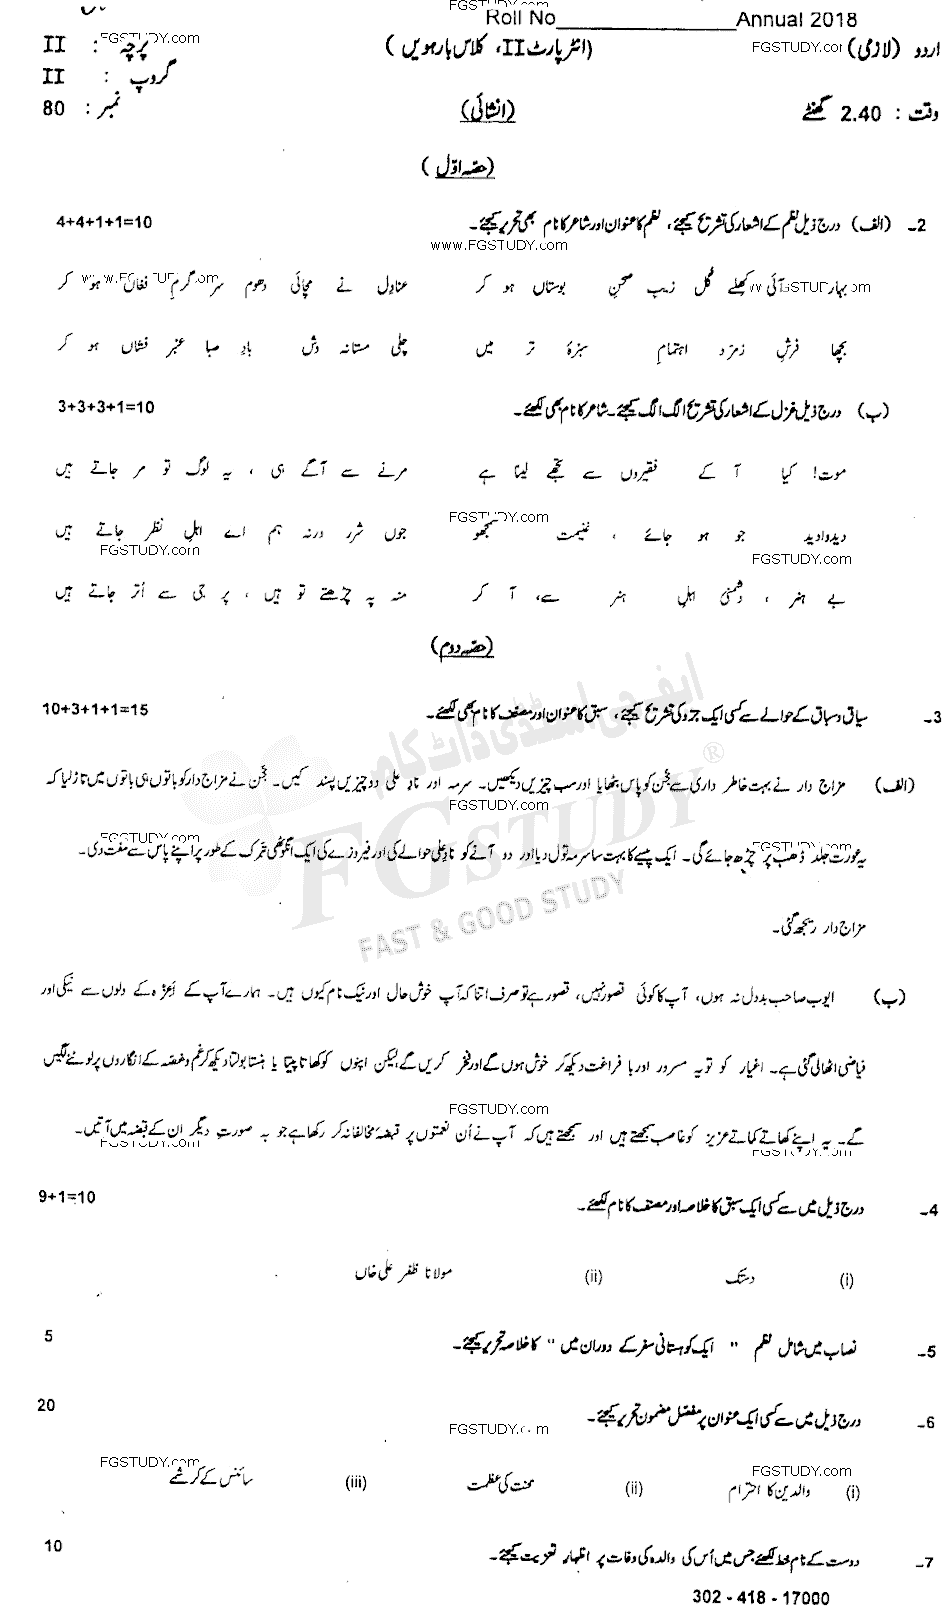 Roll No____________ Annual 2018
اردو (لازمی) (انٹر پارٹ II، کلاس بارہویں) پرچہ : II
گروپ : II
وقت : 2.40 گھنٹے (انشائی) نمبر : 80
(حصہ اوّل)
2۔ (الف) درج ذیل نظم کے اشعار کی تشریح کیجئے، نظم کا عنوان اور شاعر کا نام بھی تحریر کیجئے۔ 4+4+1+1=10
بہار آئی کھلے گل زیب صحنِ بوستاں ہو کر عنادل نے مچائی دھوم سرگرمِ فغاں ہو کر
بچھا فرشِ زمرّد اہتمامِ سبزۂ تر میں چلی مستانہ وش بادِ صبا عنبر فشاں ہو کر
(ب) درج ذیل غزل کے اشعار کی تشریح الگ الگ کیجئے۔ شاعر کا نام بھی لکھئے۔ 3+3+3+1=10
موت! کیا آ کے فقیروں سے تجھے لینا ہے مرنے سے آگے ہی، یہ لوگ تو مر جاتے ہیں
دیدوادید جو ہو جائے، غنیمت سمجھو جوں شرر ورنہ ہم اے اہلِ نظر جاتے ہیں
بے ہنر، دشمنیٔ اہلِ ہنر سے، آ کر منہ پہ چڑھتے تو ہیں، پر جی سے اُتر جاتے ہیں
(حصہ دوم)
3۔ سیاق وسباق کے حوالے سے کسی ایک جزو کی تشریح کیجئے، سبق کا عنوان اور مصنف کا نام بھی لکھئے۔ 10+3+1+1=15
(الف) مزاج دار نے بہت خاطر داری سے حجن کو پاس بٹھایا اور سب چیزیں دیکھیں۔ سرمہ اور نادِ علی دو چیزیں پسند کیں۔ حجن نے مزاج دار کو باتوں ہی باتوں میں تاڑ لیا کہ
یہ عورت جلد ڈھب پر چڑھ جائے گی۔ ایک پیسے کا بہت سا سرمہ تول دیا اور دو آنے کو نادِ علی حوالے کی اور فیروزے کی ایک انگوٹھی تبرک کے طور پر اپنے پاس سے مفت دی۔
مزاج دار ریجھ گئی۔
(ب) ایوب صاحب بددل نہ ہوں، آپ کا کوئی قصور نہیں، قصور ہے تو صرف اتنا کہ آپ خوش حال اور نیک نام کیوں ہیں۔ ہمارے آپ کے اعزہ کے دلوں سے نیکی اور
فیاضی اٹھالی گئی ہے۔ اغیار کو تو یہ مسرور اور با فراغت دیکھ کر خوش ہوں گے اور فخر کریں گے لیکن اپنوں کو کھاتا پیتا یا ہنستا بولتا دیکھ کر غم وغصہ کے انگاروں پر لوٹنے لگیں
گے۔ یہ اپنے کھاتے کماتے عزیز کو غاصب سمجھتے ہیں اور سمجھتے ہیں کہ آپ نے اُن نعمتوں پر قبضۂ مخالفانہ کر رکھا ہے جو بہ صورتِ دیگر ان کے قبضہ میں آتیں۔
4۔ درج ذیل میں سے کسی ایک سبق کا خلاصہ اور مصنف کا نام لکھئے۔ 9+1=10
(i) دستک (ii) مولانا ظفر علی خاں
5۔ نصاب میں شامل نظم " ایک کوہستانی سفر کے دوران میں " کا خلاصہ تحریر کیجئے۔ 5
6۔ درج ذیل میں سے کسی ایک عنوان پر مفصل مضمون تحریر کیجئے۔ 20
(i) والدین کا احترام (ii) محنت کی عظمت (iii) سائنس کے کرشمے
7۔ دوست کے نام خط لکھئے جس میں اُس کی والدہ کی وفات پر اظہارِ تعزیت کیجئے۔ 10
302 - 418 - 17000